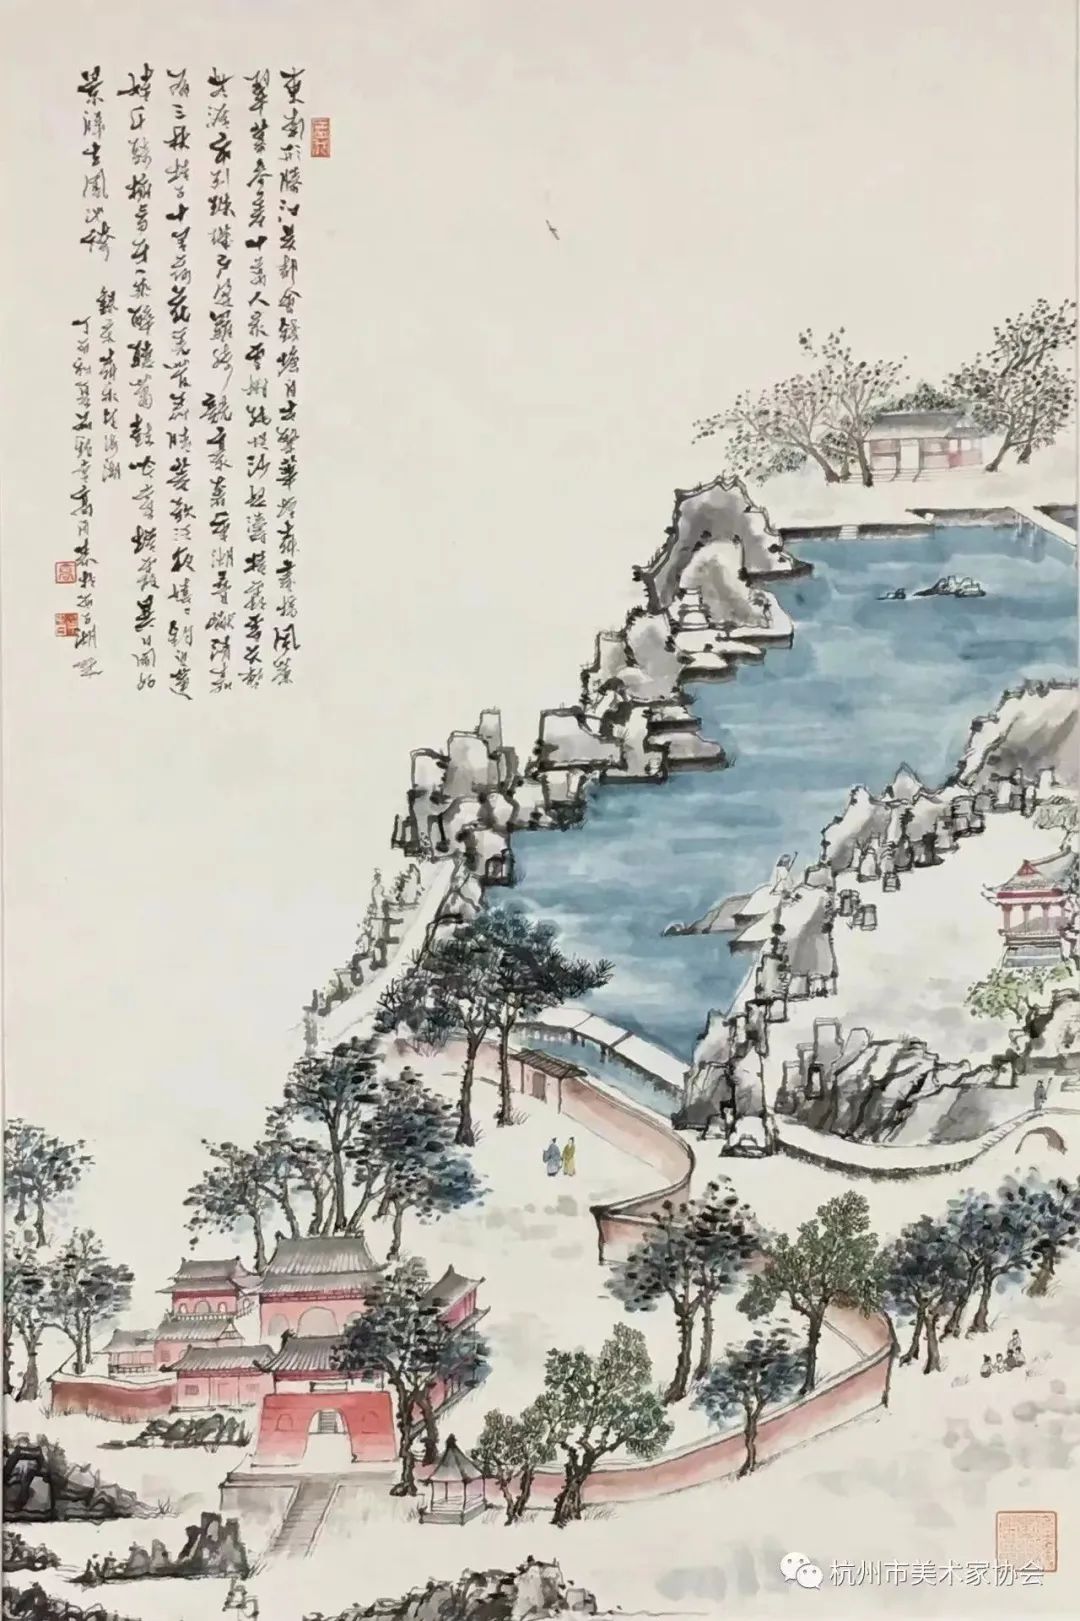 東南形勝江吴都會錢塘自古繁華煙柳畫橋風簾
翠幕参差十萬人家雲樹繞堤沙怒濤捲霜雪天塹
無涯市列珠璣户盈羅綺競豪奢重湖疊巘清嘉
有三秋桂子十里荷花羌管弄晴菱歌泛夜嬉嬉釣叟蓮
娃千騎擁高牙乘醉聽簫鼓吟賞煙霞異日圖好
景歸去鳳池誇
録宋柳永望海潮
丁酉秋月於西子湖畔
杭州市美术家协会